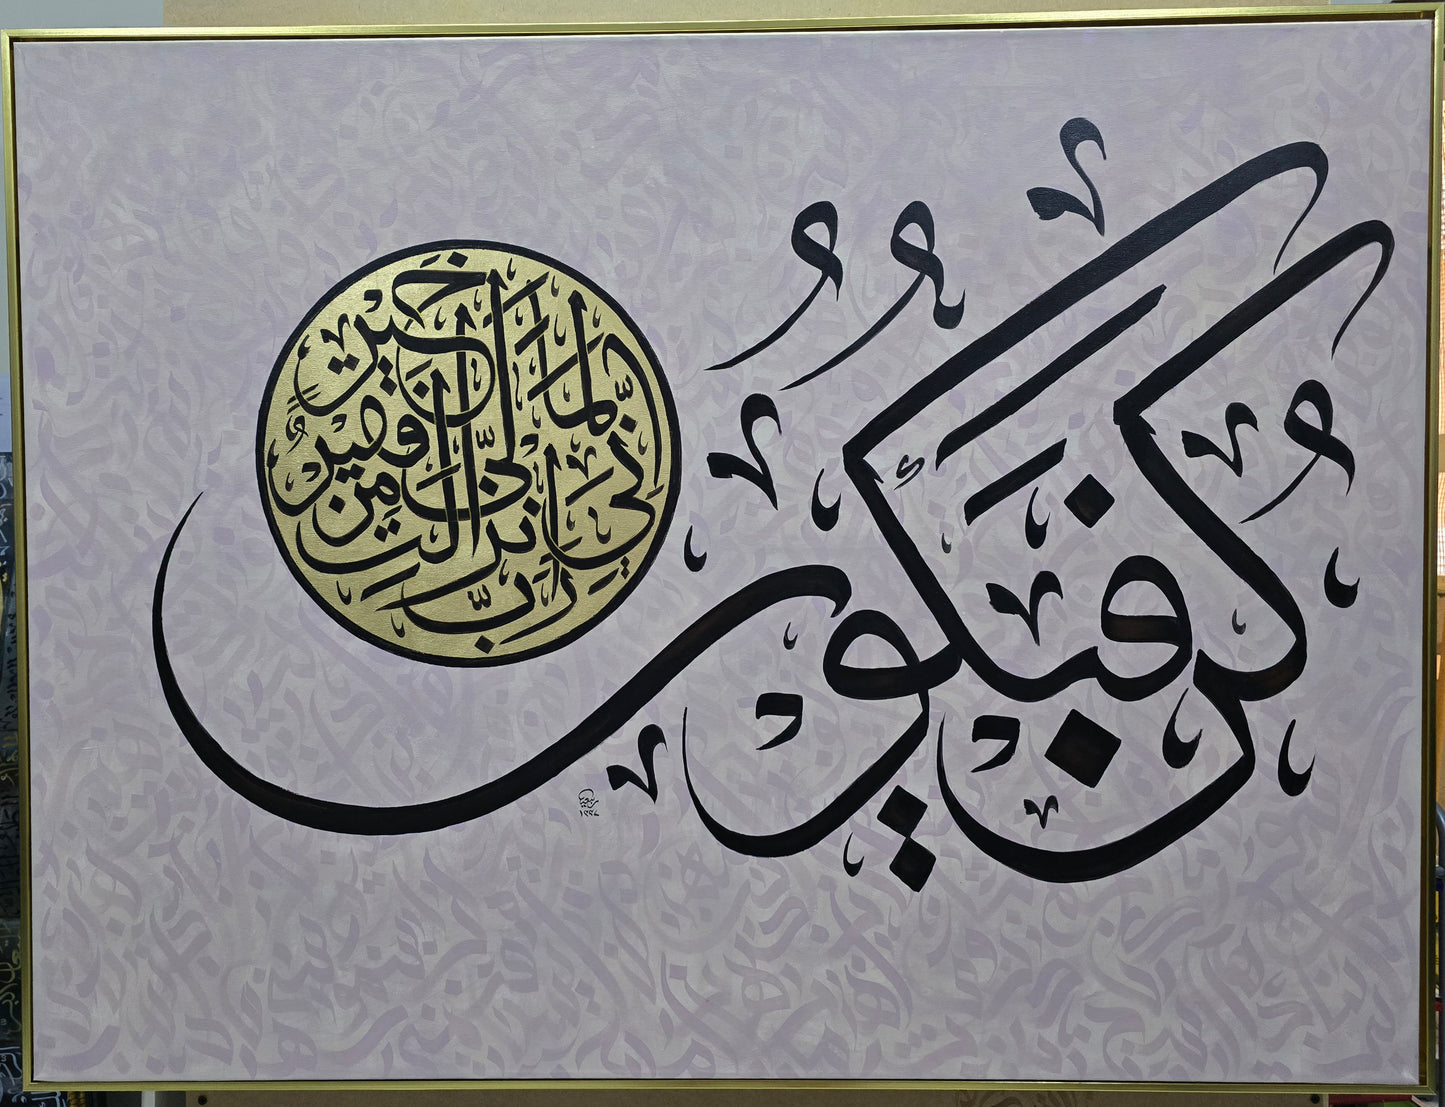 كُن فَيَكُونُ
رَبِّ إِنِّي لِمَا أَنزَلْتَ إِلَيَّ مِنْ خَيْرٍ فَقِيرٌ